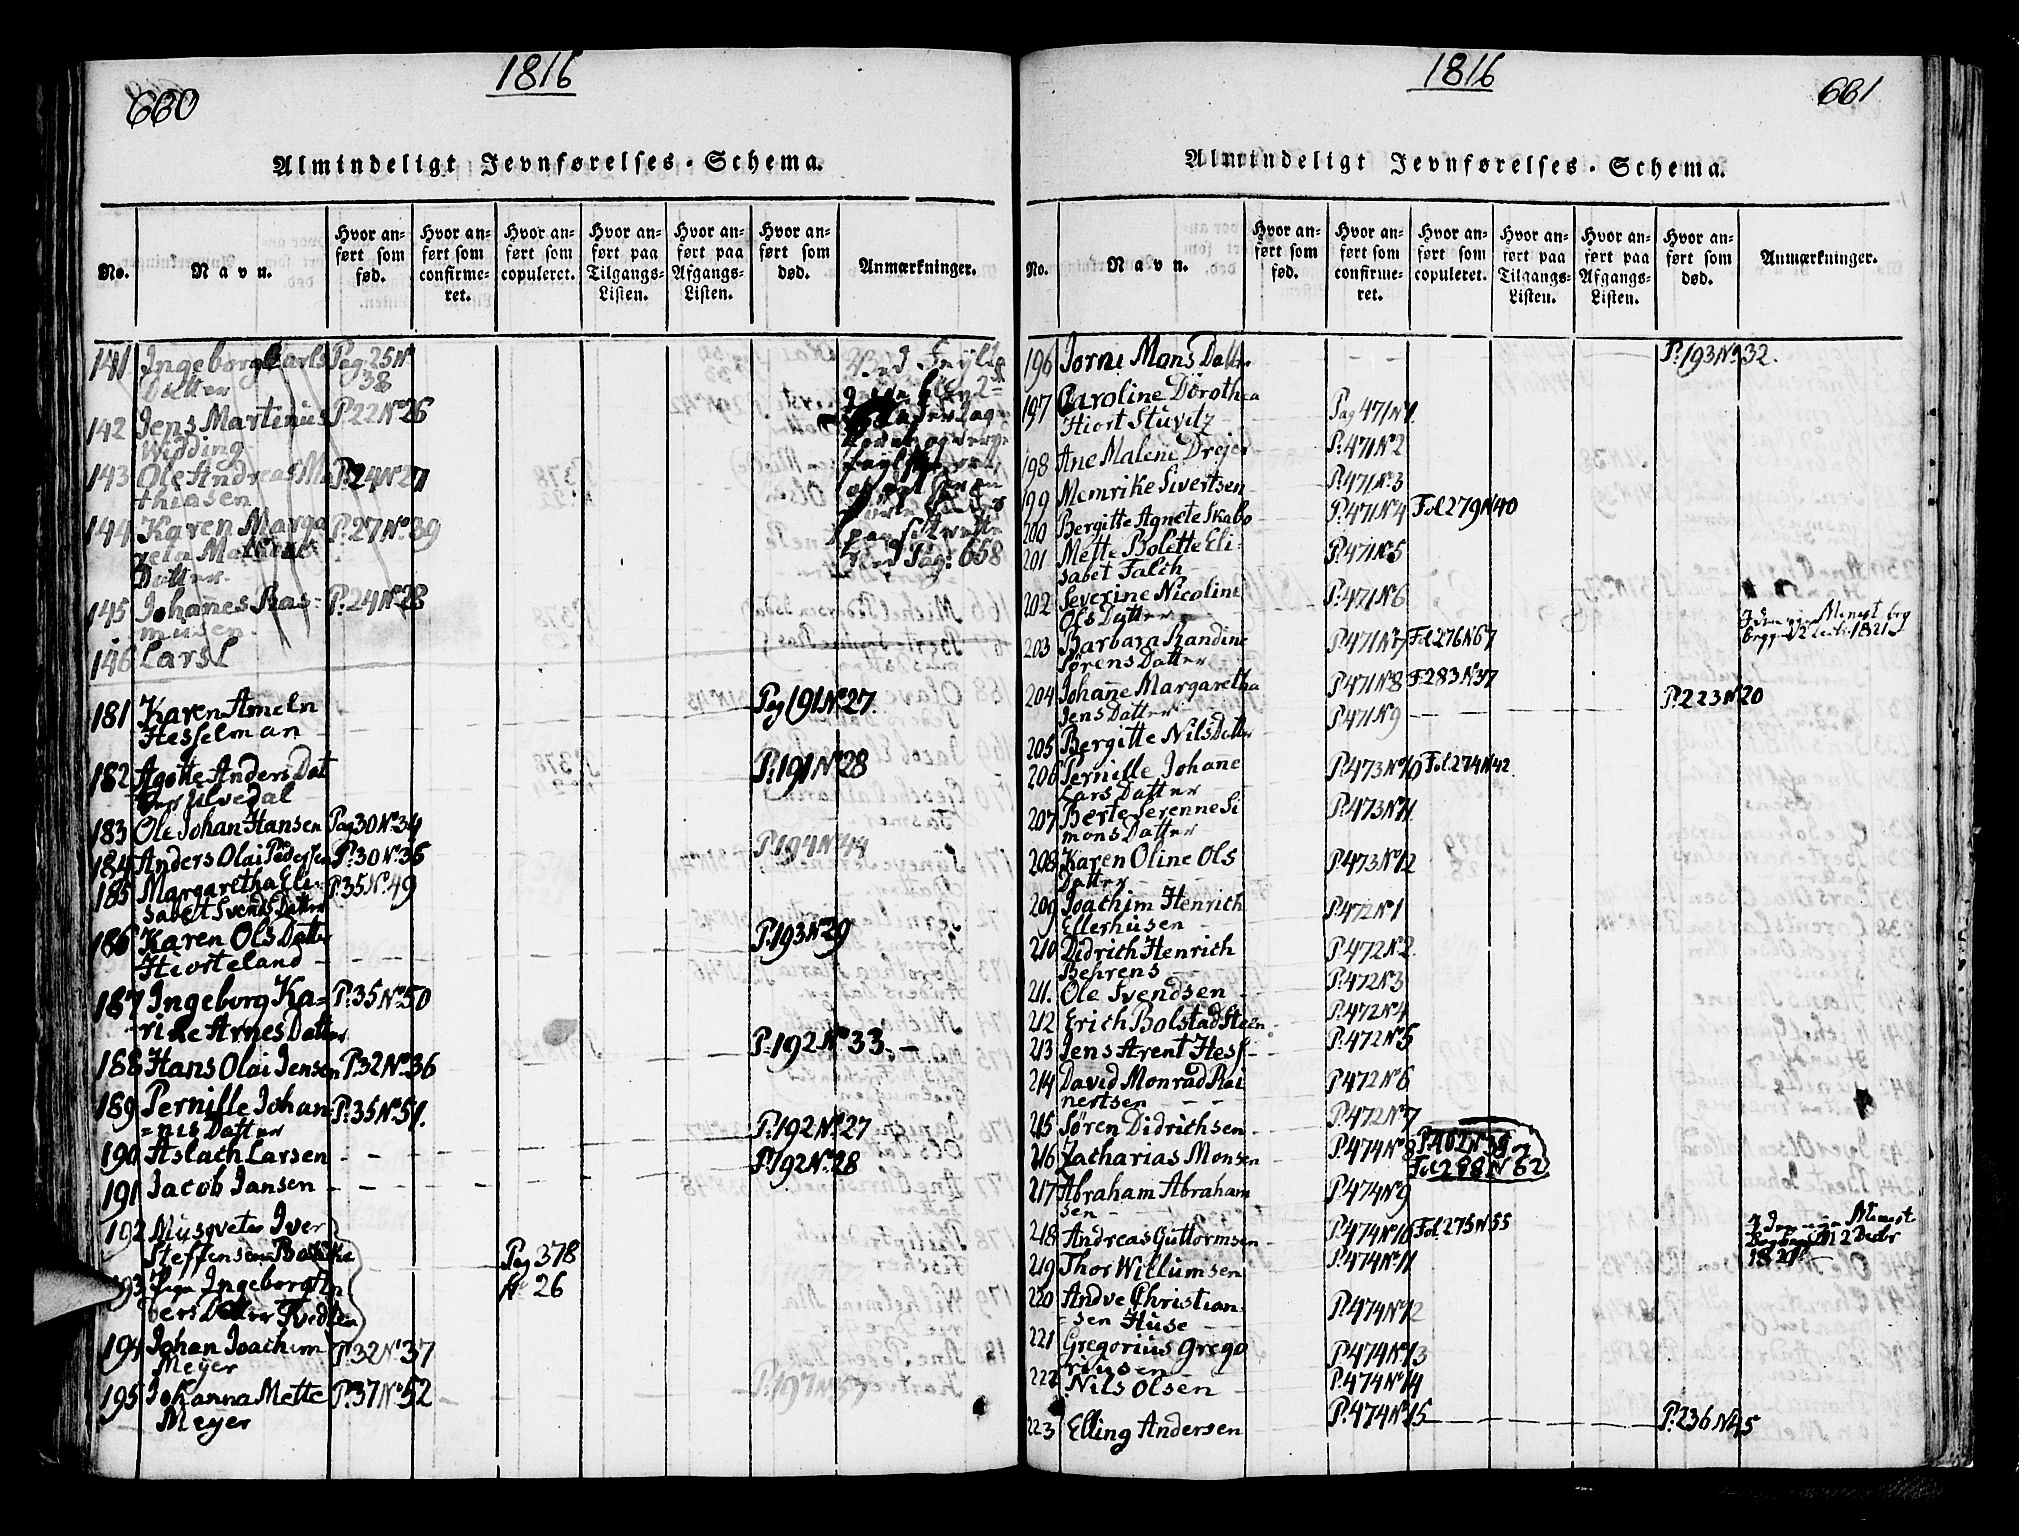 660
1816
Almindeligt Jevnførelses-Schema.
No.
Navn.
Hvor anført som fød.
Hvor anført som confirmeret.
Hvor anført som copuleret.
Hvor anført paa Tilgangs-Listen.
Hvor anført paa Afgangs-Listen.
Hvor anført som død.
Anmærkninger.
141 Ingeborg Lars Pag. 25 N
Datter 38
142 Jens Martinus P. 22 No. 26
Widding
143 Ole Andreas Ma P. 24 N. 27
thiasen
144 Karen Marga P. 27 No. 39
Datter
145 Johañes Ras- P. 24 No. 28
musen
146 Lars
Pag: 658
181 Karen Ameln Pag 191 No. 27.
Hesselman
182 Agotte Anders Dat P. 191 No. 28
Ulvedal
183 Ole Johan Hansen Pag 30 No. 34
184 Anders Olai Pedersen P. 30 No. 35 P. 194 N 44
185 Margaretha Eli- P. 35 No. 49
sabet Svends Datter
186 Karen Ols Datter P. 193 No. 29
Hiorteland
187 Ingeborg Ka= P. 35 No. 50
rine Arnes Datter
188 Hans Olai Jensen P. 32 No. 36 P. 192 No. 33.
189 Pernille Johan P. 35 No. 51.
=nis Datter
190 Aslach Larsen P. 192 No. 27
191 Jacob Jansen P. 192 No. 28
192 Musqveter Iver
Steffensen
193 Pige Ingeborg An Pag 378
ders Datter N 26
194 Johan Joachim P. 32 No. 37
Meyer
195 Johanna Mette P. 37 No. 52 P. 197 N 57
Meyer
1816
661
Almindeligt Jevnførelses-Schema.
No.
Navn.
Hvor anført som fød.
Hvor anført som confirmeret.
Hvor anført som copuleret.
Hvor anført paa Tilgangs-Listen.
Hvor anført paa Afgangs-Listen.
Hvor anført som død.
Anmærkninger.
196 Jorni Mons Datter P. 193 No. 32.
197 Caroline Dorothea
Hiort Stuvitz Pag 471 N 1.
198 Ane Malene Drejer P. 471 No. 2
199 Memrike Sivertsen P. 471 No. 3
200 Bergitte Agnete Skabo P. 471 No. 4 Fol. 279 N 40
201 Mette Bolette Eli- P. 471 No. 5
sabet Falch
202 Severine Nicoline P. 471 No. 6
Ols Datter
203 Barbara Randine P. 471 No. 7 Fol. 276 N 67
Sørens Datter
204 Johañe Margaretha P. 471 No. 8 F. 283 N. 37
Jens Datter
205 Bergitte Nils Datter P. 471 N 9 P. 223 N 20
206 Pernille Johañe P. 473 No. 10 Fol. 274 N 42
Lars Datter
207 Berte Serenne Si P. 473 No. 11.
mons Datter
208 Karen Oline Ols P. 473 No. 12
Datter
209 Joachim Henrich P. 472 No. 1
Ellerhusen
210 Didrich Henrich P. 472 No. 2.
Behrens
211. Ole Svendsen P. 472 No. 3
212 Erich Bolstad Steen P. 472 No. 4
213 Jens Arent Hess P. 472 No. 5
214 David Monrad Rai P. 472 No. 6
nertsen
215 Søren Didrichsen P. 472 No. 7
216 Zacharias Monsen P. 474 No. 8
Fol. 288 N 62
217 Abraham Abraham P. 474 No. 9
sen
218 Andreas Guttormsen P. 474 No. 10 Fol. 275 N 55
219 Thor Willumsen P. 474 No. 11
220 Andve Christian P. 474 No. 12
=sen Huse
221 Gregorius Grego P. 474 No. 13
riusen
222 Nils Olsen P. 474 No. 14
223 Elling Andersen P. 474 No. 15 P. 236 N 45